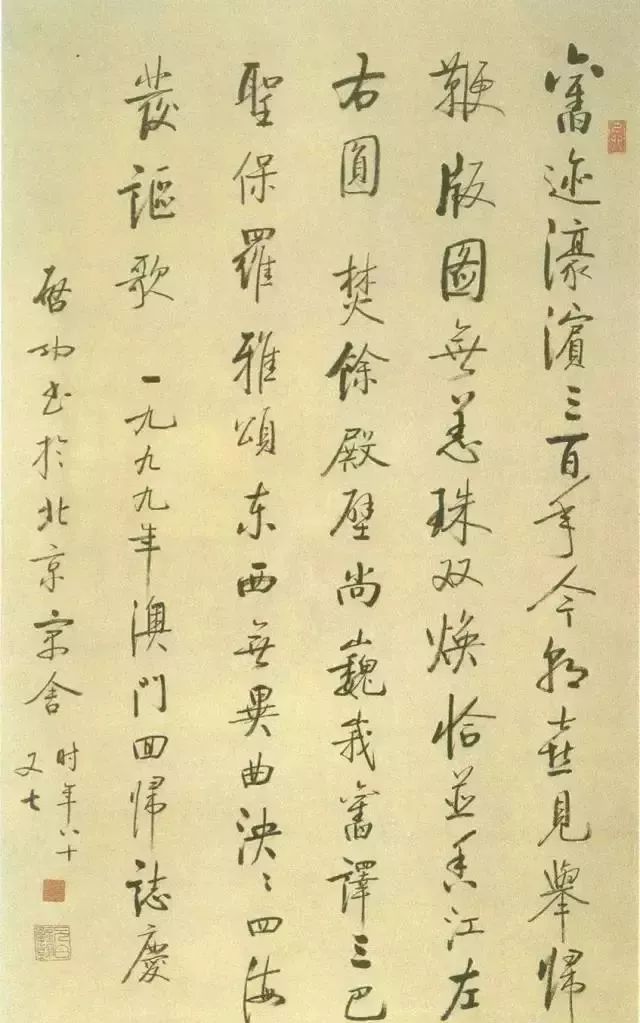 舊迹濠濱三百年今朝喜見舉歸
鞭版圖無恙珠双煥恰並香江左
右圓 焚餘殿壁尚巍峩舊譯三巴
聖保羅雅頌东西無異曲泱〻四海
發謳歌 一九九九年澳門回歸誌慶
啓功书於北京寓舍
时年八十
又七